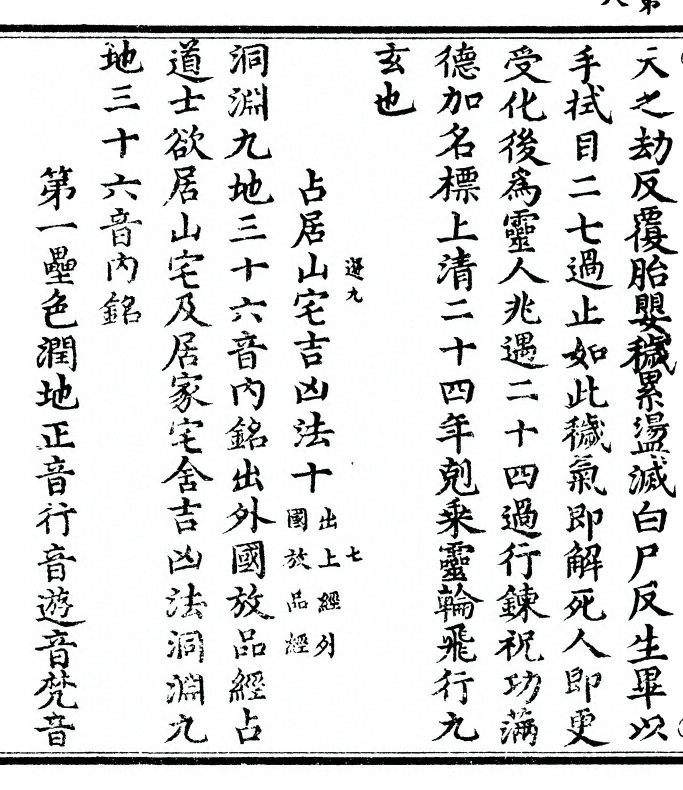 天之劫反覆胎嬰穢累盪滅白尸反生畢以
手拭目二七過止如此穢氣即解死人即更
受化後爲靈人兆遇二十四過行鍊祝功滿
德加名標上清二十四年剋乘靈輪飛行九
玄也
選九 七
占居山宅吉凶法十 出上經列國放品經
洞淵九地三十六音內銘出外國放品經占
道士欲居山宅及居家宅舍吉凶法洞淵九
地三十六音內銘
第一壘色潤地正音行音遊音梵音